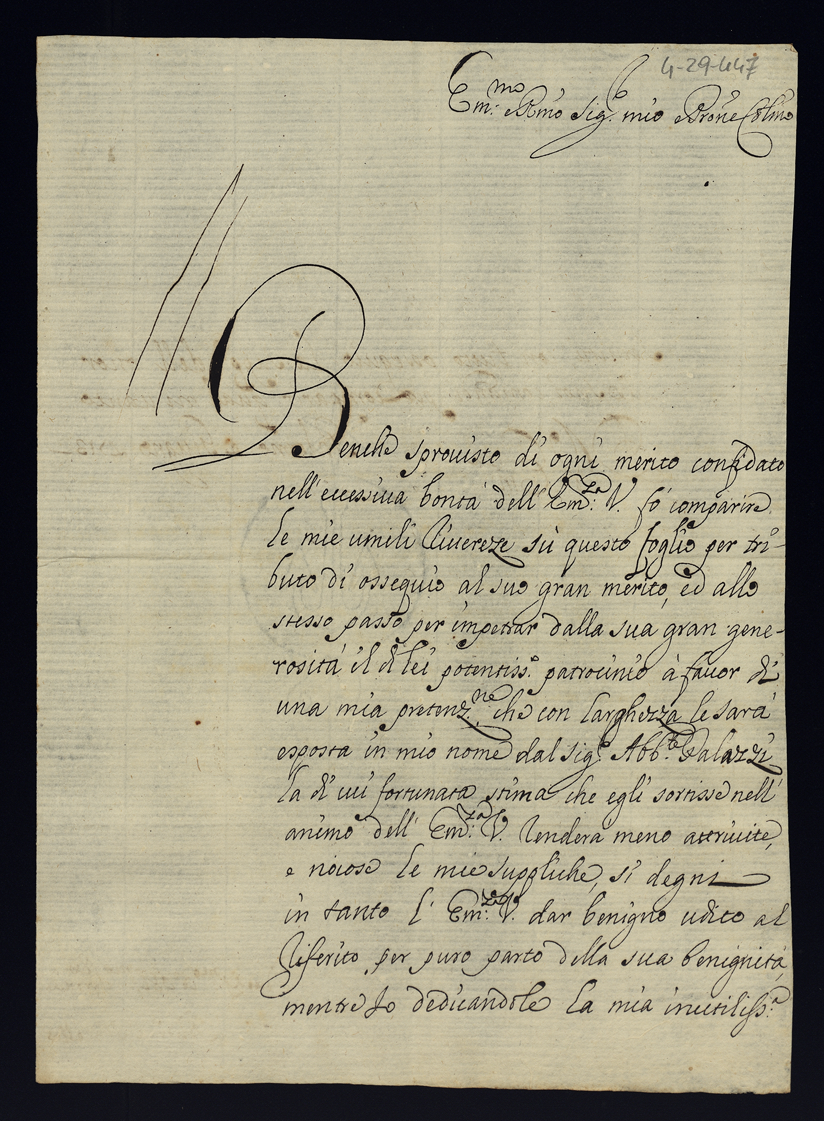 4-29-447
Em.mo e Rmo Sig.r mio Prōne Colmo
Benche sprouisto di ogni merito confidato
nell'eccessiua bontà dell'Em.za V. fò comparire
le mie umili riuereze sù questo foglio per tri-
buto di ossequio al suo gran merito, ed allo
stesso passo per impetrar dalla sua gran gene-
rosità il di lei potentiss.o patrocinio à fauor di
una mia pretenz.ne che con larghezza le sarà
esposta in mio nome dal sig.r Abb.te Palazzi
la di cui fortunata stima che egli sortisse nell'
animo dell'Em.za V. renderà meno attriuite,
e noiose le mie suppliche, si degni
in tanto l'Em.za V. dar benigno udito al
riferito per puro parto della sua benignità
mentre Io dedicandole la mia inutiliss.a